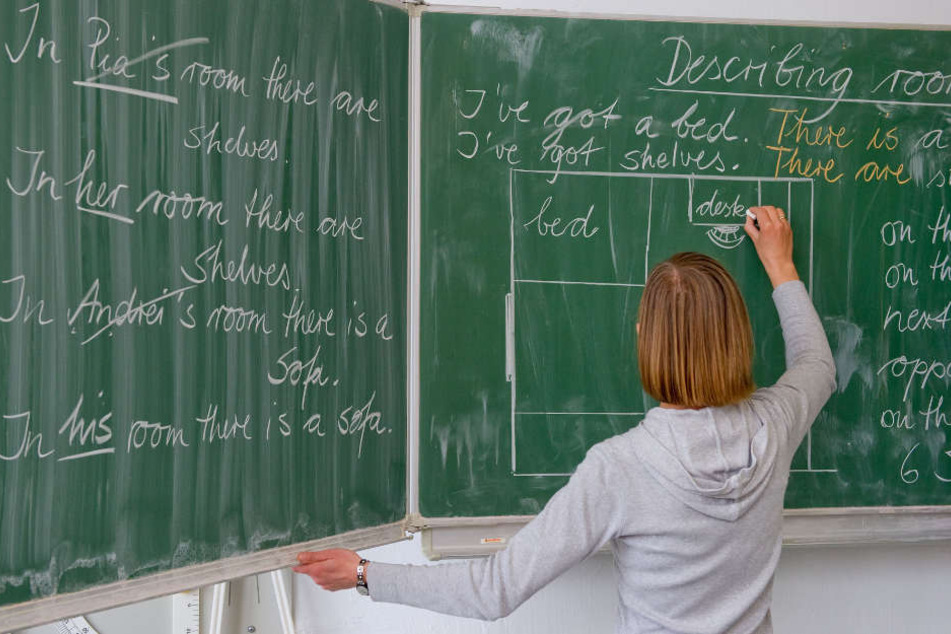 In Pia's room there are
shelves.
In her room there are
shelves.
In Andrei's room there is a
sofa.
In his room there is a sofa.
Describing roo
I've got a bed. There is a
I've got shelves. There are s
bed
desk
on th
on the
next
oppo
on th
6